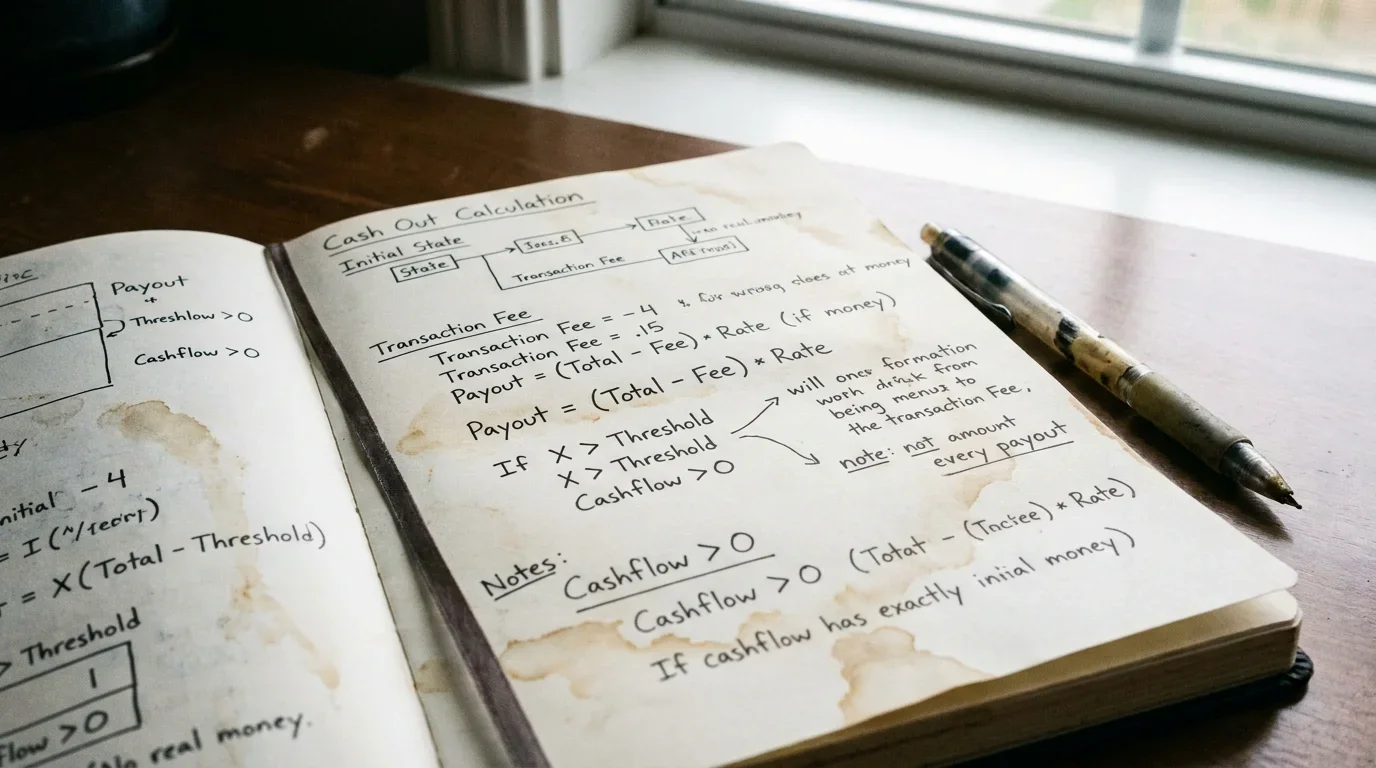 Payout
Threshlow > 0
Cashflow > 0
- 4
= X (Total - Threshold)
> Threshold
1
flow > 0
(No real money.
Cash Out Calculation
Initial State
State
Rate
real money
Transaction Fee
Transaction Fee
Transaction Fee = - 4 % for wrong sloes at money
Transaction Fee = .15
Payout = (Total - Fee) * Rate (if money)
Payout = (Total - Fee) * Rate
If X > Threshold
X > Threshold
Cashflow > 0
will ones formation
worh from
being menus to
the transaction Fee,
note: not amount
every payout
Notes:
Cashflow > 0
Cashflow > 0 (Totat - (Tnctee) * Rate)
If cashflow has exactly iniial money)